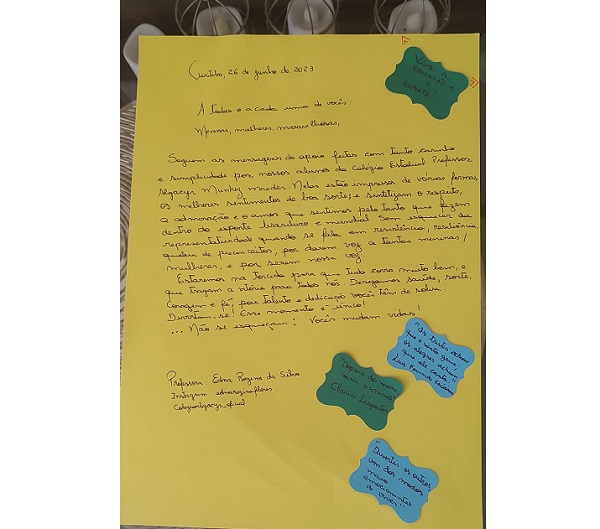 Curitiba, 26 de junho de 2023
Viva a
EDUCAÇÃO e
o
ESPORTE!
A todas e a cada uma de vocês
Meninas, mulheres, maravilhosas,
Seguem as mensagens de apoio feitas com tanto carinho
e simplicidade por nossos alunos do Colégio Estadual Professor
Algacyr Munhoz Maeder. Nelas estão impressos de várias formas,
os melhores sentimentos de boa sorte, e sintetizam o respeito,
a admiração e o amor que sentimos pelo tanto que fazem
dentro do esporte brasileiro e mundial. Sem esquecer da
representatividade quando se fala em resistência, resiliência,
quebra de preconceitos, por darem voz a tantas meninas/
mulheres, e por serem nossa voz.
Estaremos na torcida para que tudo corra muito bem, e
que tragam a vitória para todos nós. Desejamos saúde, sorte,
coragem e fé, pois talento e dedicação vocês têm de sobra.
Divirtam-se! Esse momento é único!
... Não se esqueçam: Vocês mudam vidas!
Professora Edna Regina da Silva
Instagram ednareginaflores
colegioalgacyr_oficial
"Os tristes acham
que o vento geme,
os alegres acham
que ele canta."
Luis Fernando Veríssimo
"Depois do medo,
vem o mundo"
Clarice Lispector
"Divertir os outros,
um dos modos
mais
emocionantes
de viver"